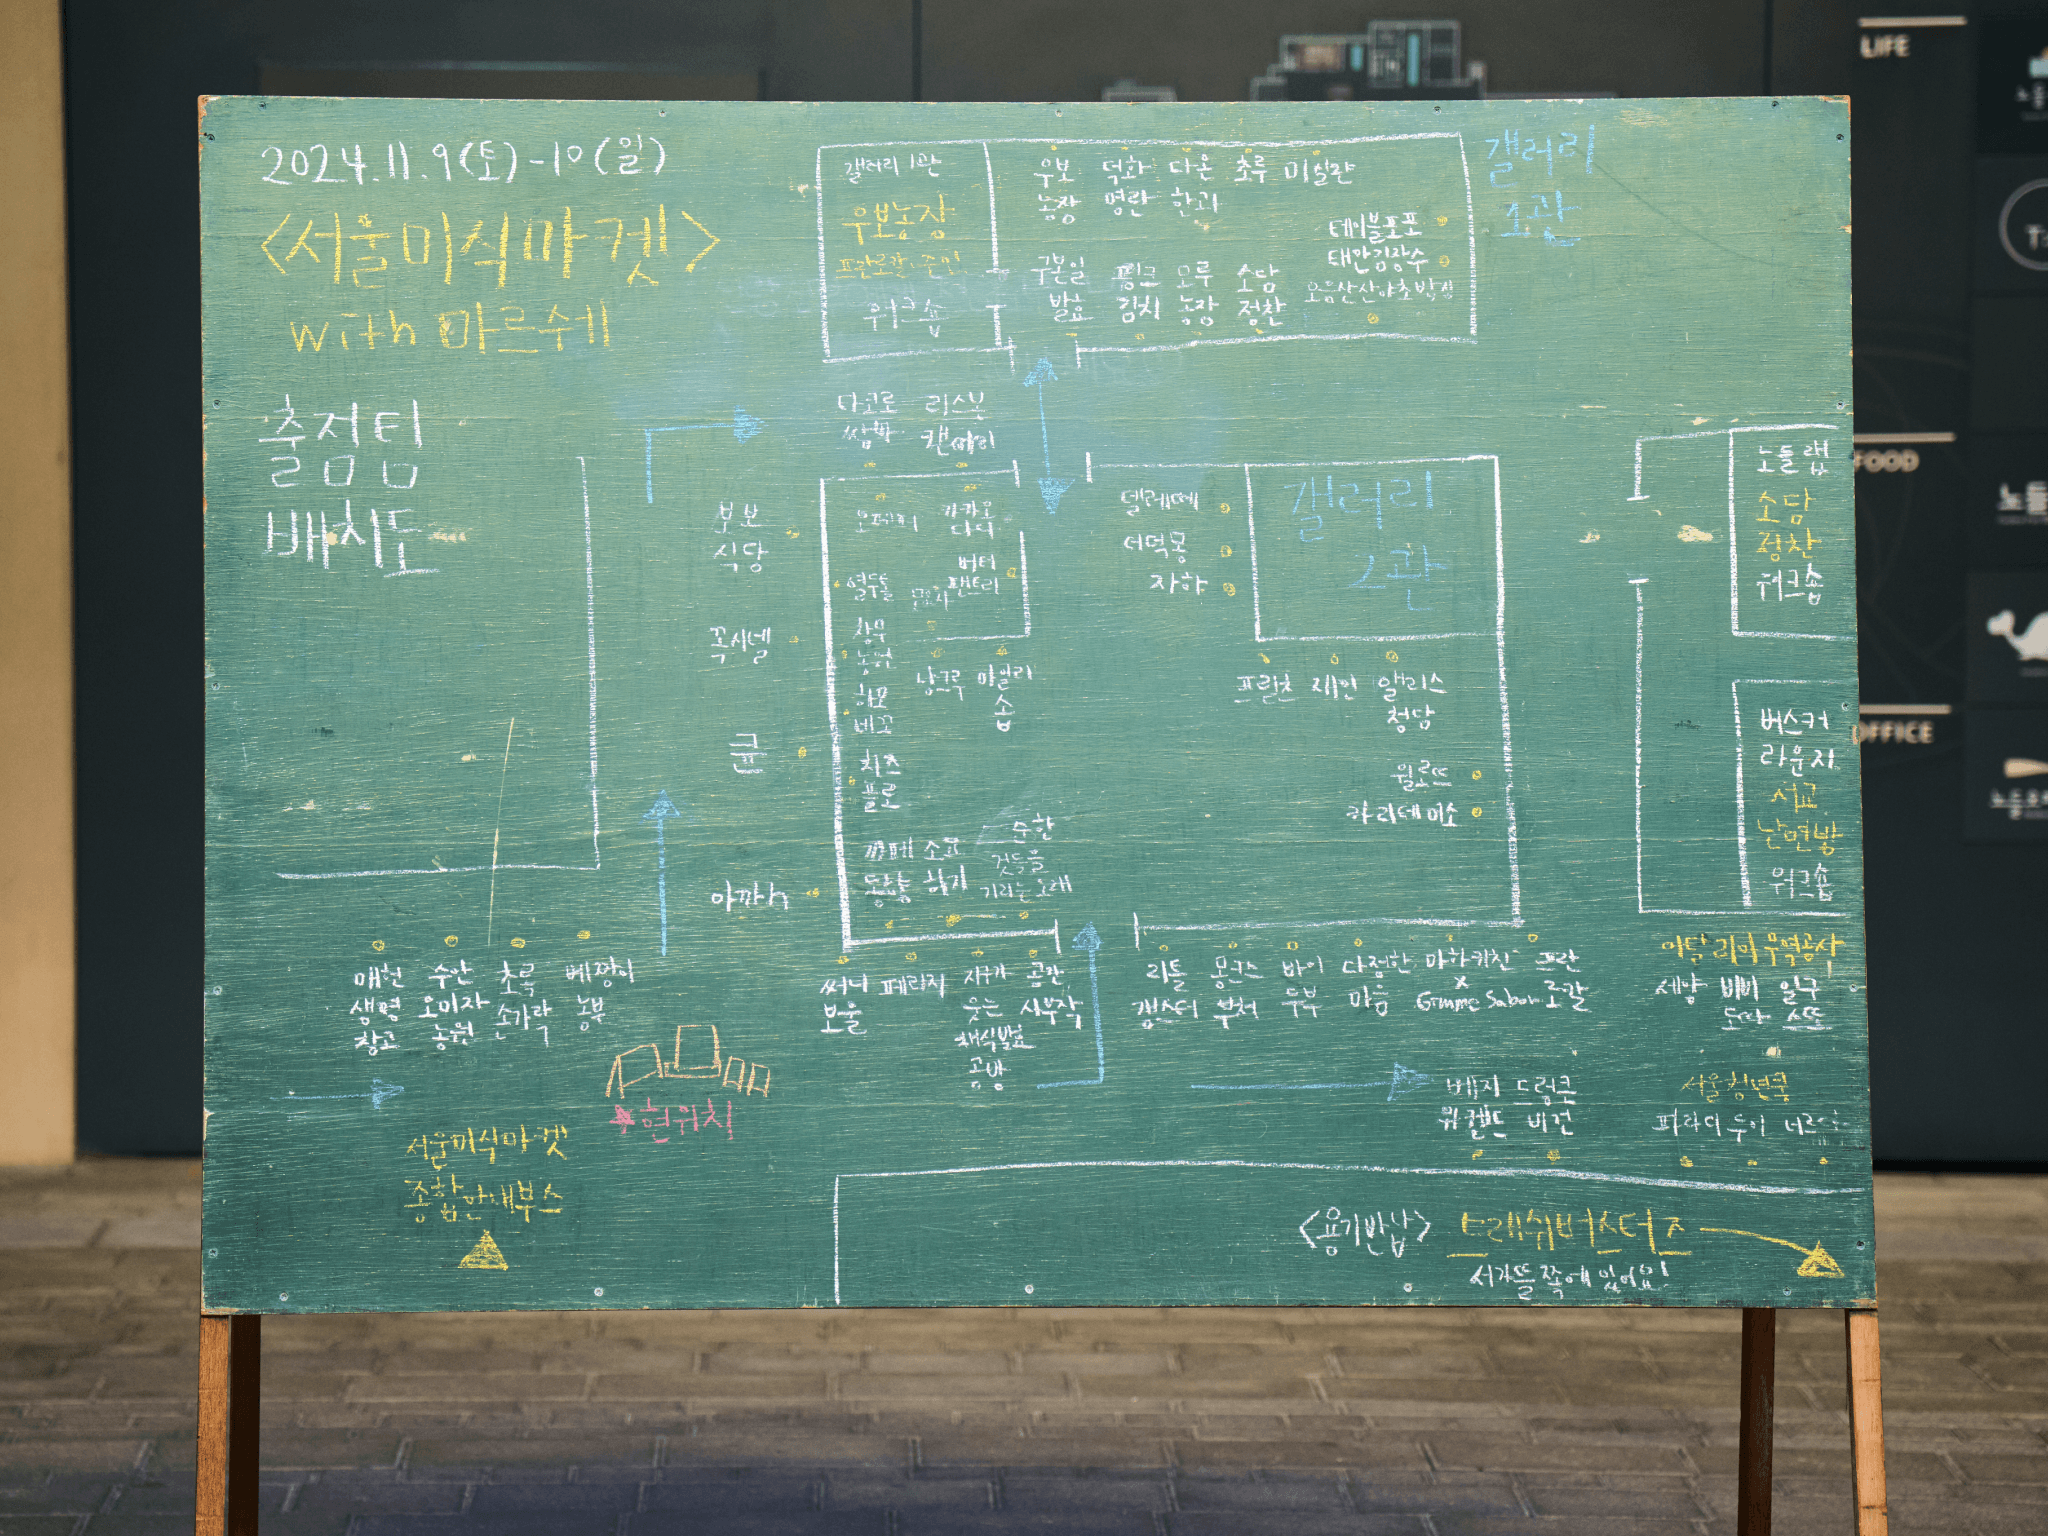 2024.11.9(토)-10(일)
<서울미식마켓>
with 마르쉐
출점팀
배치도
갤러리 1관
우보농장
프란로칼·준민
워크숍
우보 덕화 다온 초루 미실란
농장 명란 한과
테이블포포
태안김장수
구본일 핑크 모루 소담
발효 김치 농장 정찬
갤러리
1관
다코로 리스본
쌈바 캔메리
부보
식당
꼭시넬
큔
아까h
오페퍼 카카오
다다
버터
팬트리
열두달
창우
농원
하모
베꼬
낭크루 마일리
솝
치즈
플로
까페 소요
동남 하기
순한
것들을
기리는 노래
델레떼
더덕몽
자하
갤러리
2관
프릳츠 재인 앨리스
청담
월로뜨
카리데미소
노들랩
소담
정찬
워크숍
버스커
라운지
서교
난면방
워크숍
매헌 수안 초록 베짱이
생명 오미자 손가락 농부
창고 농원
써니 페리지 지구가 공간
보울 웃는 시부작
채식발효
공방
리틀 몽크스 바이 다정한 마하키친 프란
갱스터 부처 두부 마음 x Gimme Sabor 로칼
이탈리아 무역공사
세양 비비 일구
도따 스또
현위치
서울미식마켓
종합안내부스
베지 드렁큰
위켄드 비건
서울청년쿡
파라디 두이
<용기반납> 트래쉬버스터즈
서가뜰 쪽에 있어요!
LIFE
FOOD
OFFICE